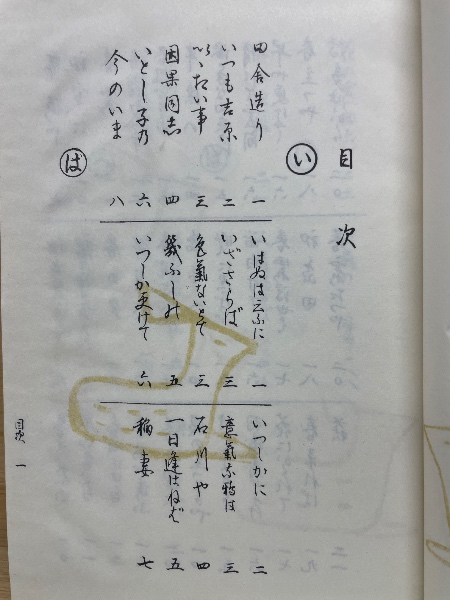 目次
い
田舎造り 一
いはぬは云ふに 一
いつしかに 二
いつも吉原 二
いざさらば 三
意氣な 三
いゝたい事 三
色氣ないとて 三
石川や 四
因果同志 四
五
一日逢はねば 五
いとし子乃 六
いつしか更けて 六
稲妻 七
今のいま 八
は
目次 一